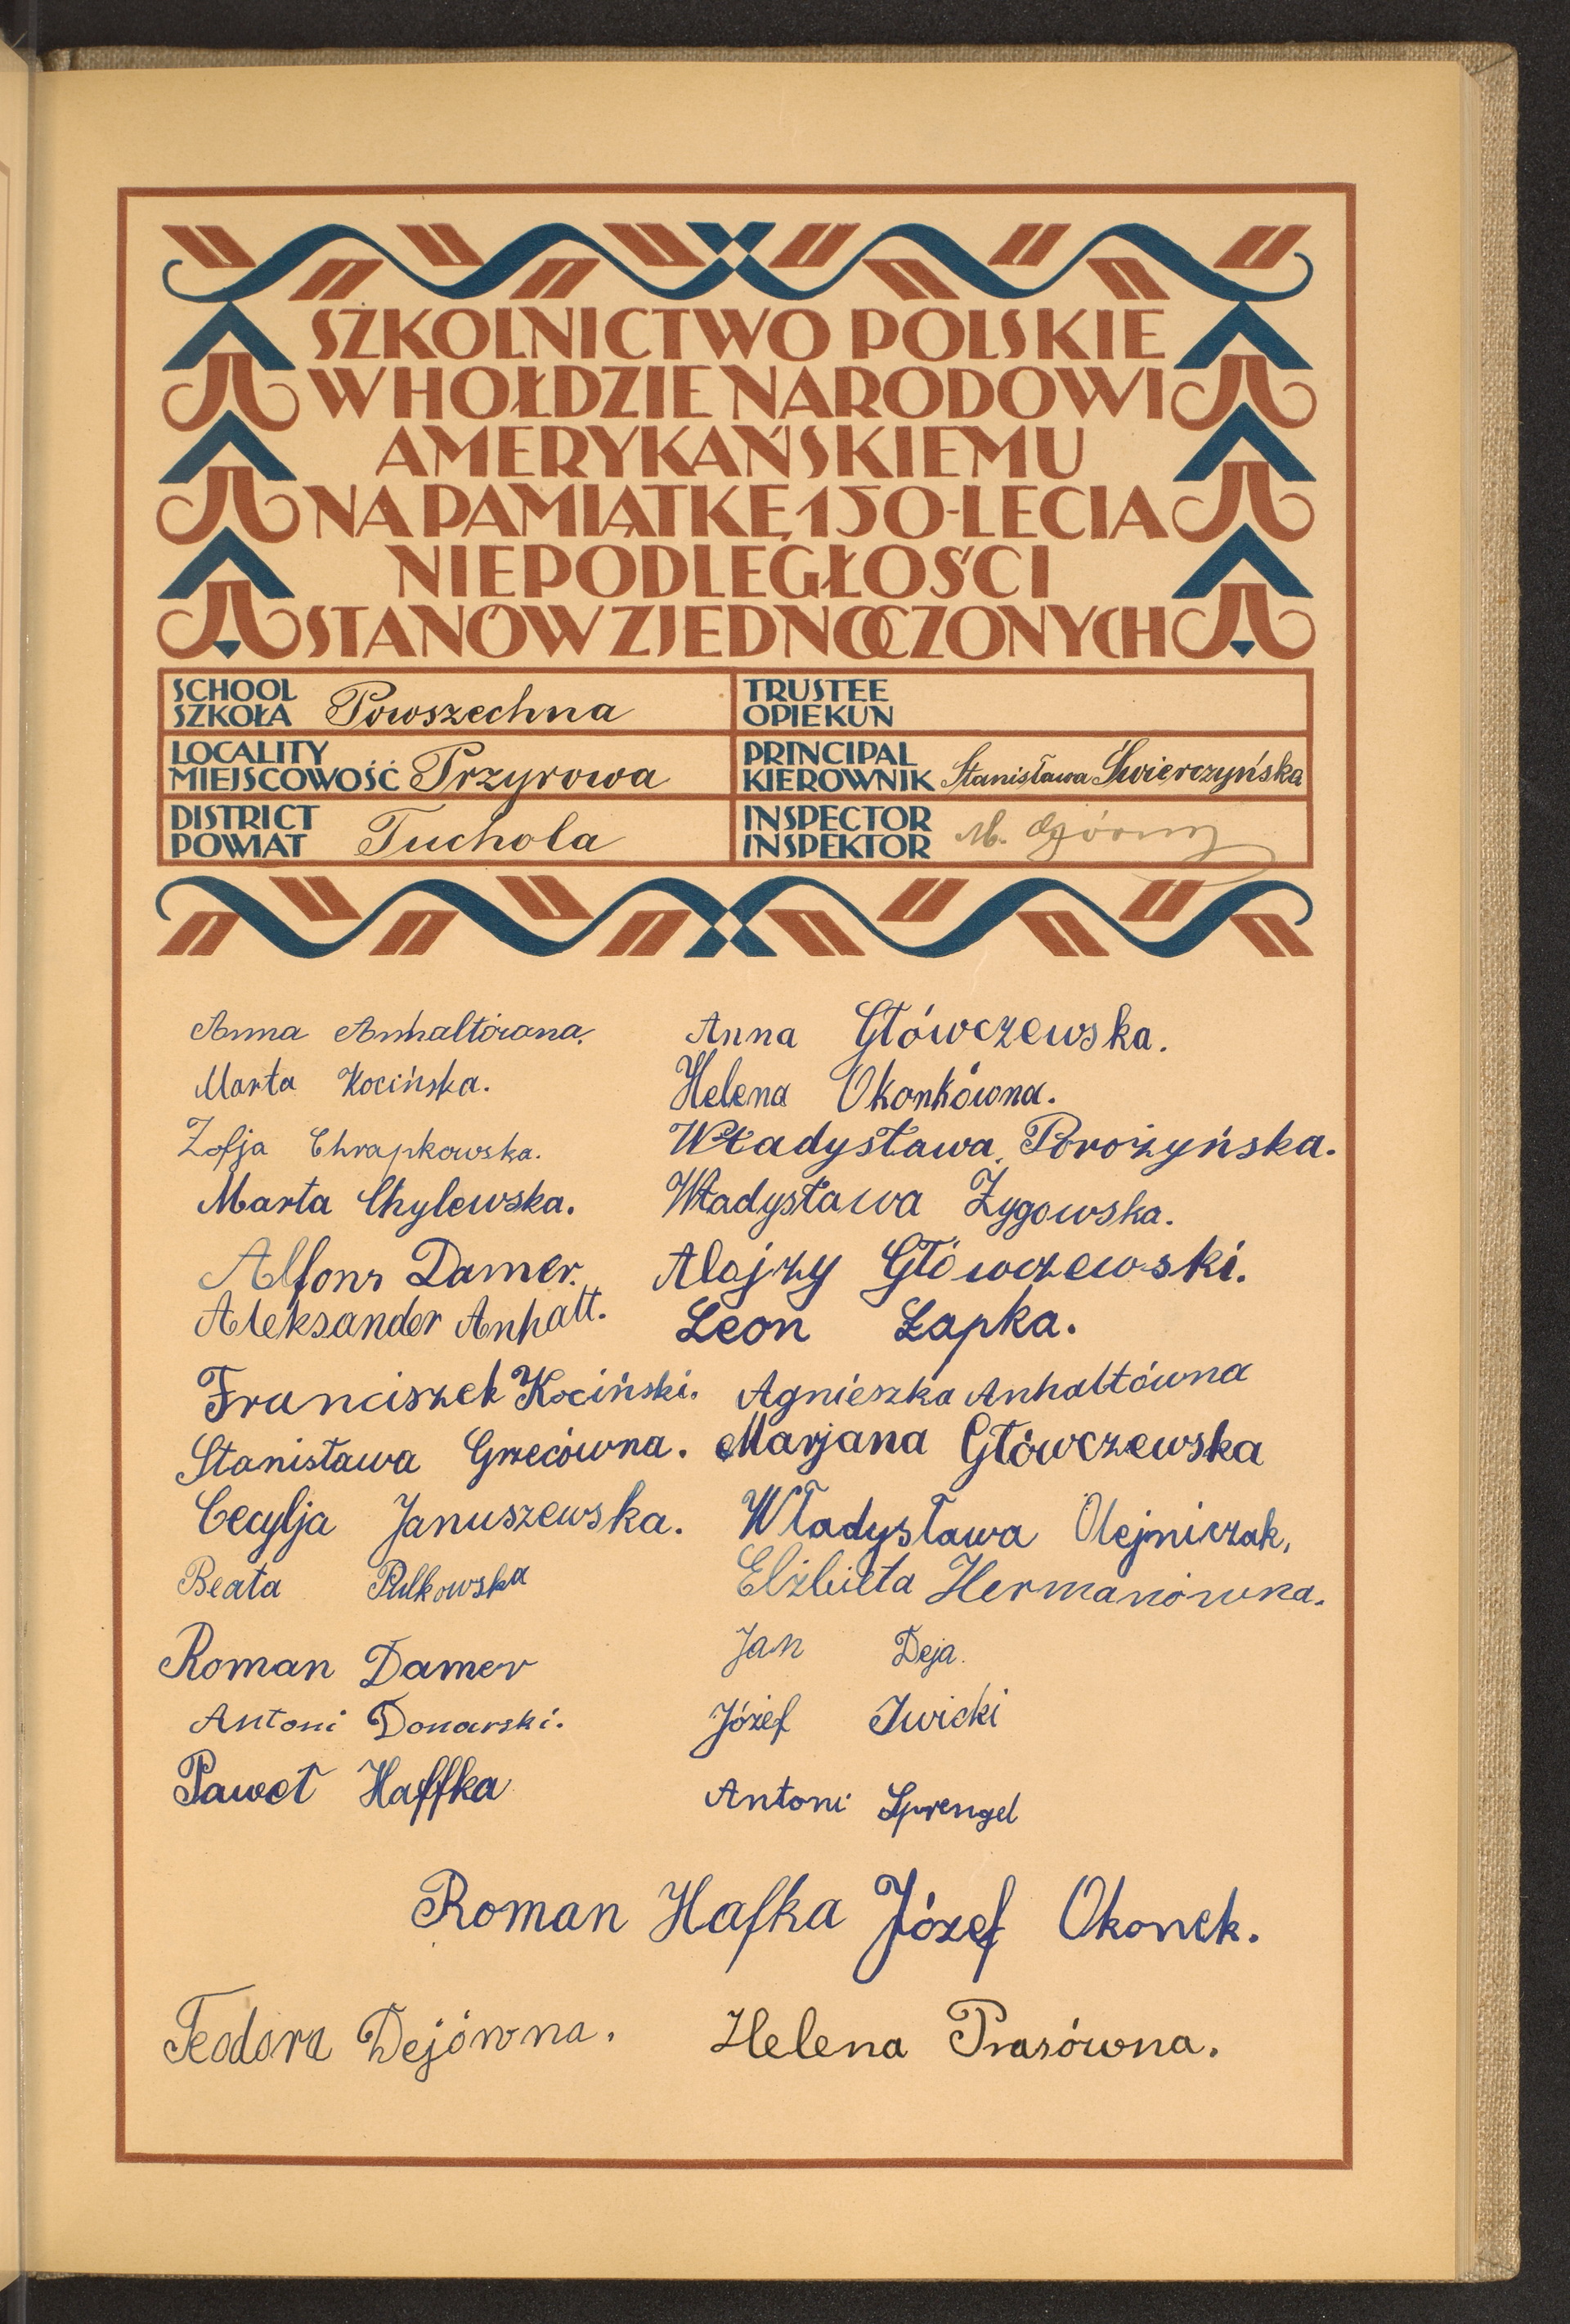 SZKOLNICTWO POLSKIE
W HOŁDZIE NARODOWI
AMERYKAŃSKIEMU
NA PAMIĄTKĘ 150-LECIA
NIEPODLEGŁOŚCI
STANÓW ZJEDNOCZONYCH
SCHOOL
SZKOŁA Powszechna
TRUSTEE
OPIEKUN
LOCALITY
MIEJSCOWOŚĆ Przyrowa
PRINCIPAL
KIEROWNIK Stanisława Świerczyńska
DISTRICT
POWIAT Tuchola
INSPECTOR
INSPEKTOR M. Górny
Anna Anhaltówna. Anna Główczewska.
Marta Kocińska. Helena Okonkówna.
Zofja Chrapkowska. Władysława Porożyńska.
Marta Chylewska. Władysława Zygowska.
Alfons Damer. Alojzy Główczewski.
Aleksander Anhalt. Leon Łapka.
Franciszek Kociński. Agnieszka Anhaltówna
Stanisława Grecówna. Marjana Główczewska
Cecylja Januszewska. Władysława Olejniczak,
Beata Pulkowska Elżbieta Hermanówna.
Roman Damer Jan Deja.
Antoni Donarski. Józef Iwicki
Paweł Haffka Antoni Sprengel
Roman Hafka Józef Okonek.
Teodora Dejówna. Helena Prasówna.